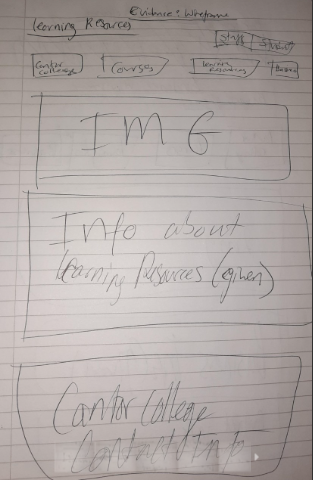 Evidence: Wireframe
Learning Resources
Staff Student
Cantor College
Courses
Learning Resources
IMG
Info about
Learning Resources (given)
Cantor College
Contact Info